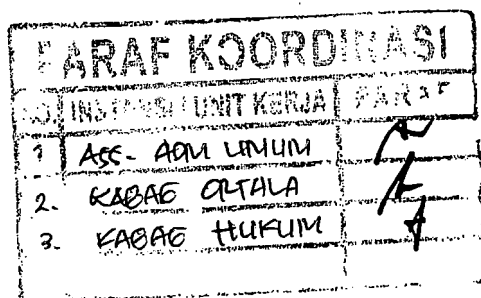 PARAF KOORDINASI
NO. INSTANSI / UNIT KERJA PARAF
1 ASS- ADM UMUM
2. KABAG ORTALA
3. KABAG HUKUM